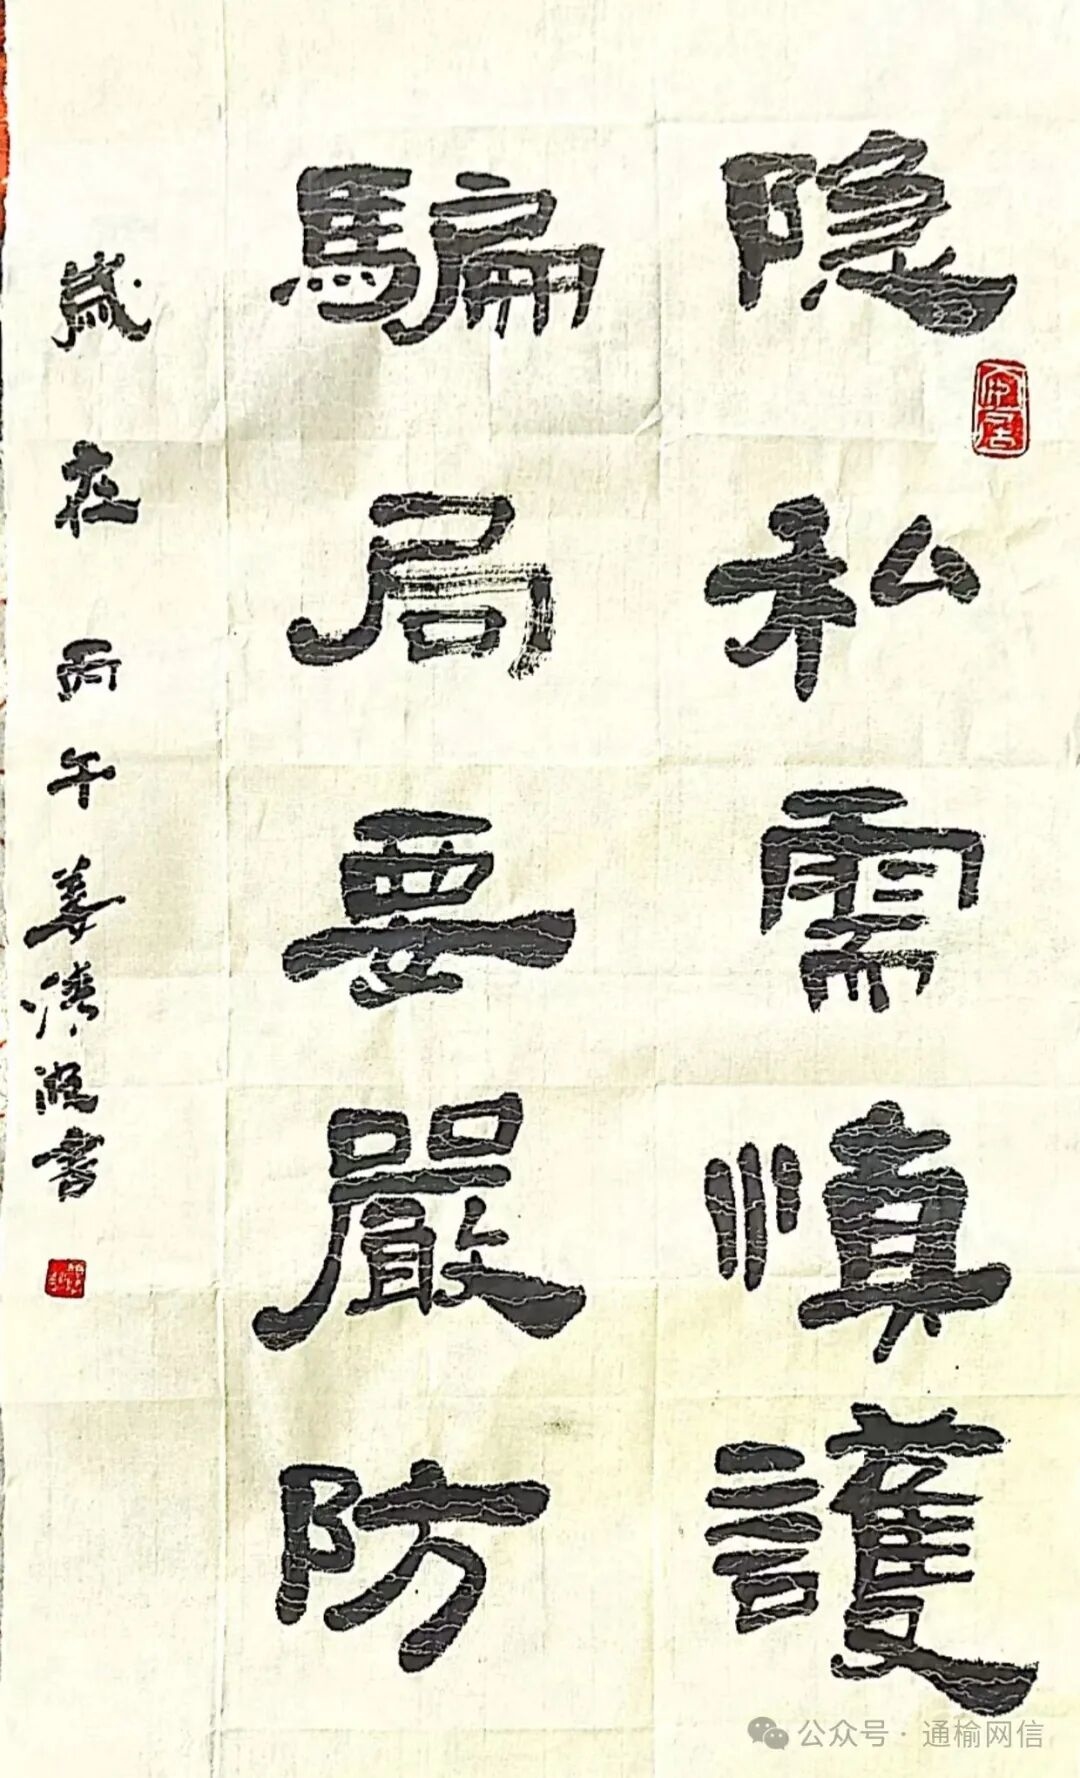 隐私需慎護
騙局要嚴防
歲在丙午姜濤書
公众号·通榆网信